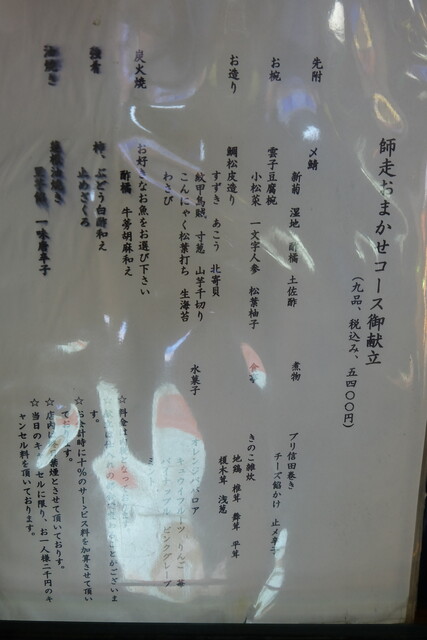 師走おまかせコース御献立
(九品、税込み、五四〇〇円)
先附
〆鯖
新菊 湿地 酢橘 土佐酢
お椀
雲子豆腐椀
小松菜 一文字人参 松葉柚子
お造り
鯛松皮造り
すずき あこう 北寄貝
紋甲烏賊、寸葱 山芋千切り
こんにゃく松葉打ち 生海苔
わさび
炭火焼
お好きなお魚をお選び下さい
酢橘 牛蒡胡麻和え
強肴
柿、ぶどう白酢和え
止めざくろ
油焼き
一味唐辛子
煮物
ブリ信田巻き
チーズ餡かけ 止メ辛子
食事
きのこ雑炊
地鶏 椎茸 舞茸 平茸
榎木茸 浅葱
水菓子
オレンジババロア
りんご 苺
ピンクグレープ
☆料金は
ことがございま
す。
☆お会計時に十%のサービス料を加算させて頂い
ております。
☆店内は 禁煙とさせて頂いております。
☆当日のキャンセルに限り、お一人様二千円のキ
ャンセル料を頂いております。